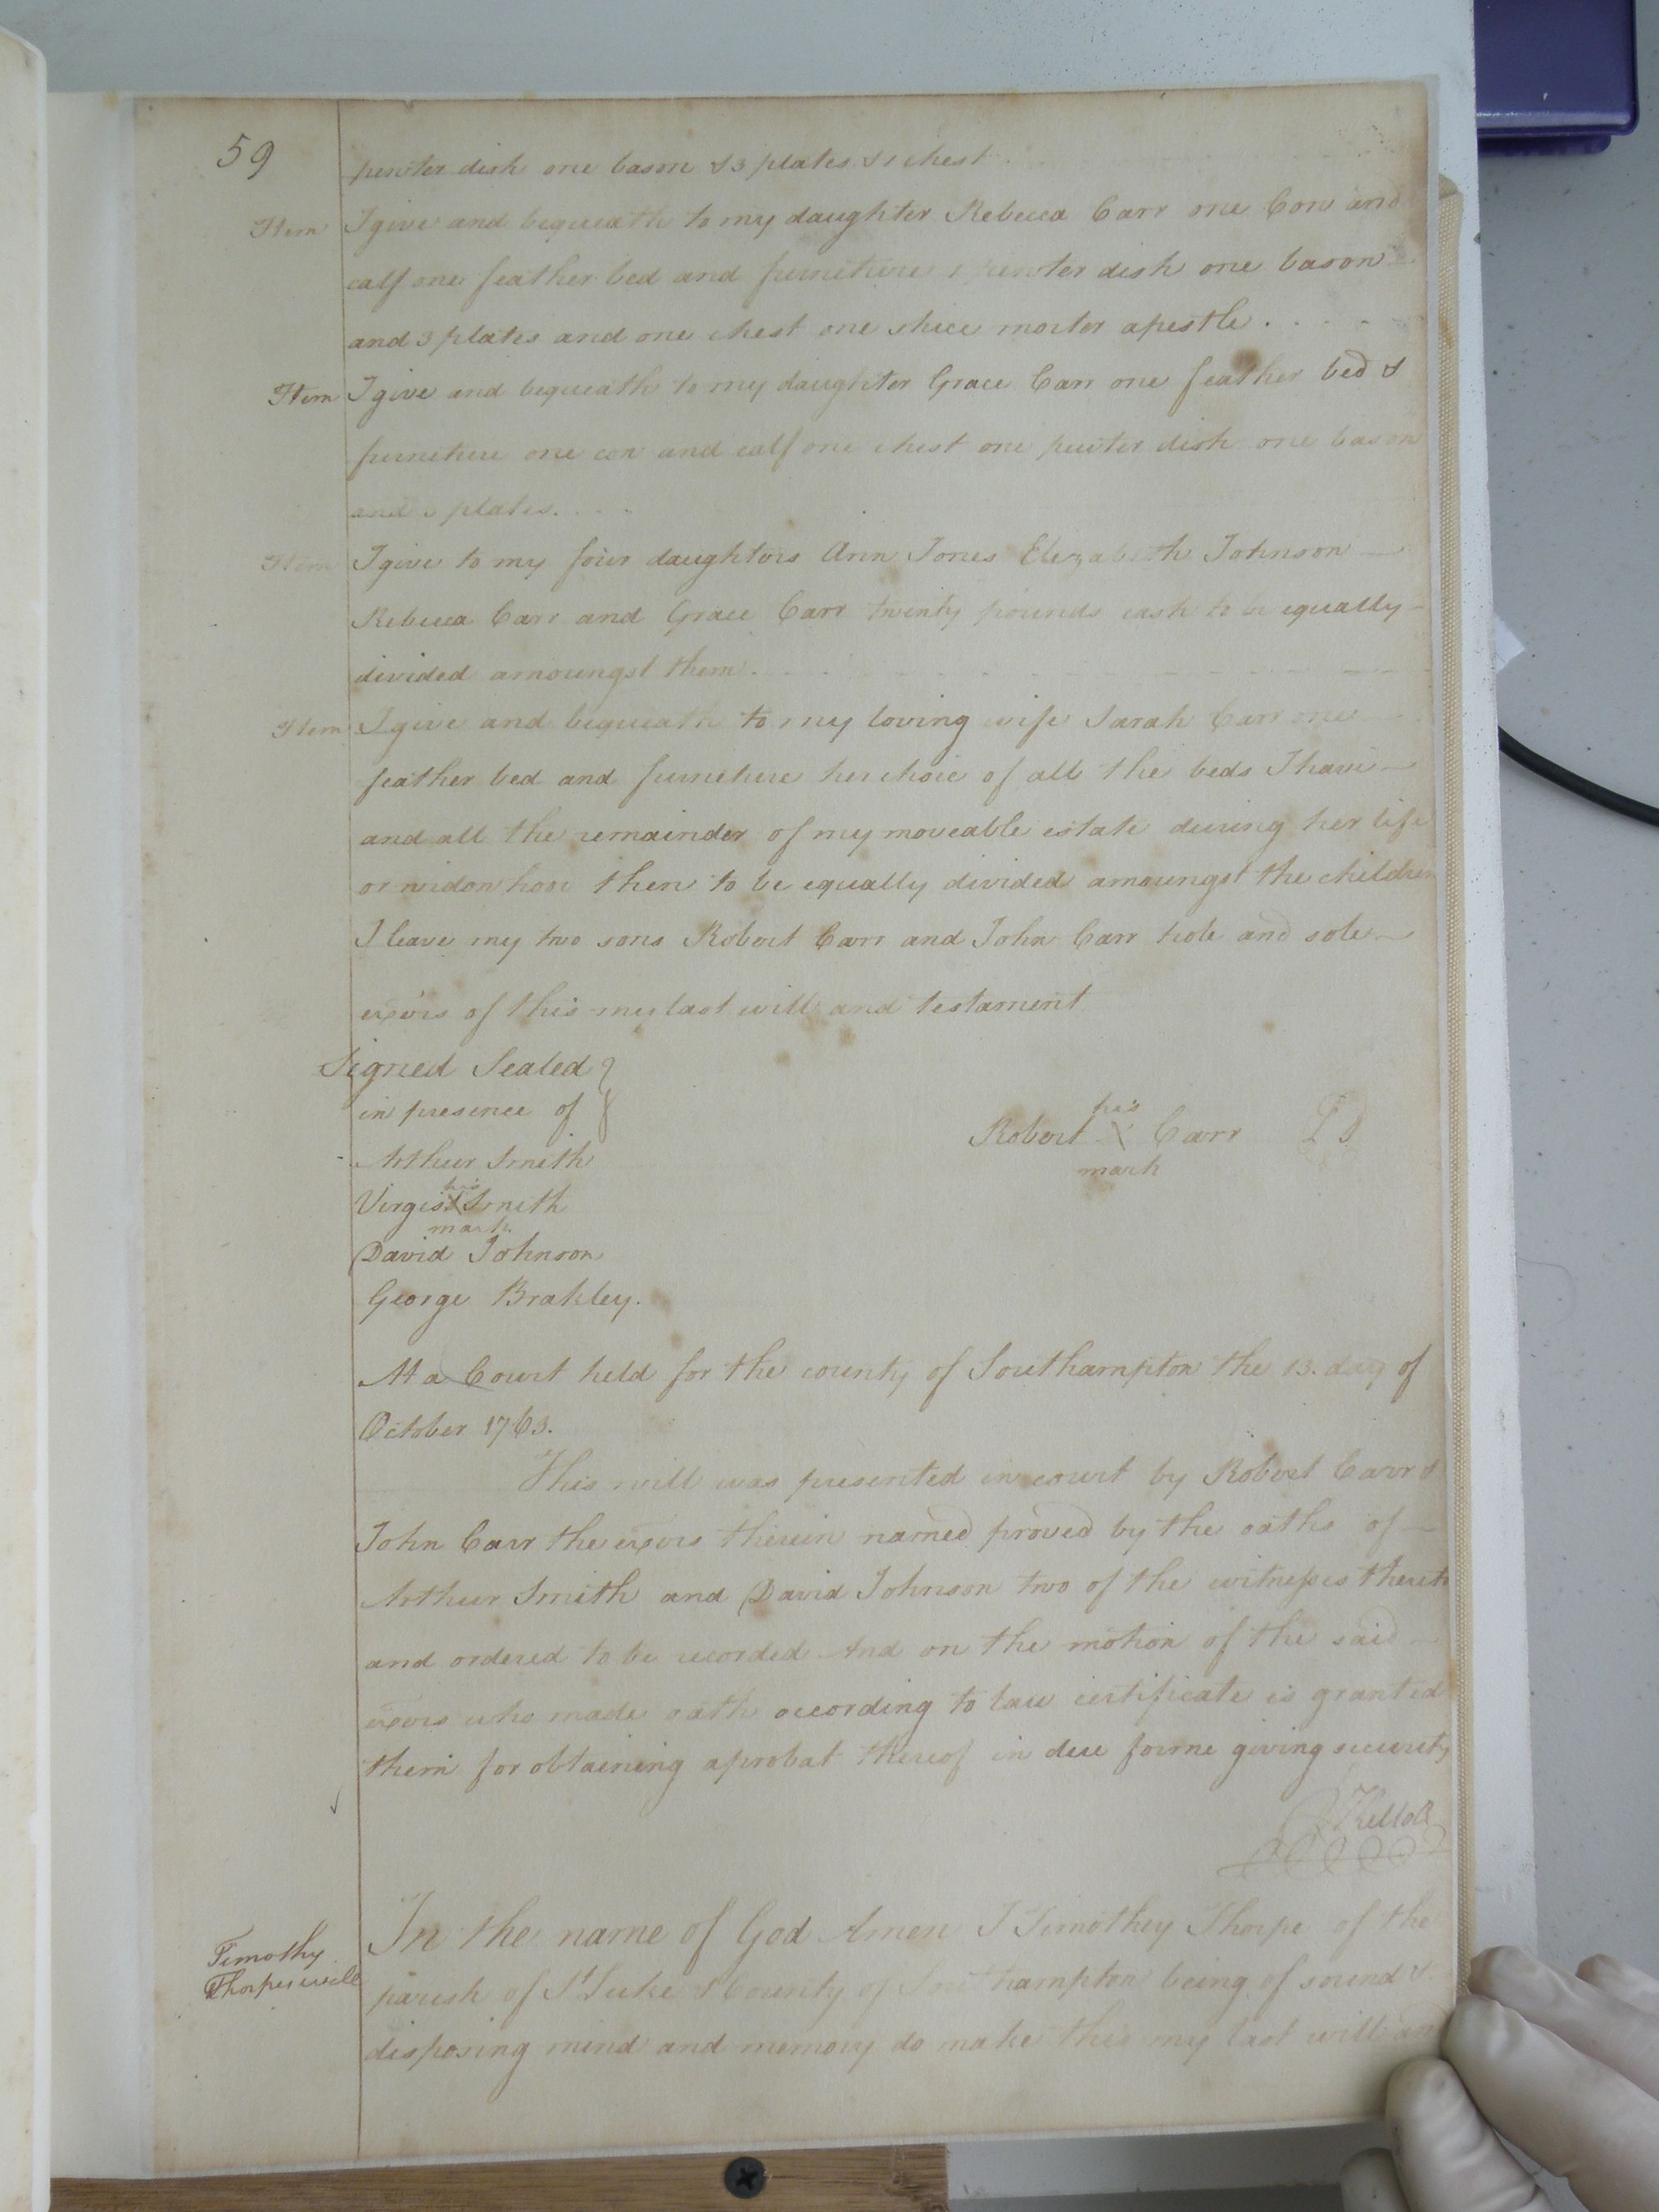 59
pewter dish one bason & 3 plates & 1 chest
Item I give and bequeath to my daughter Rebecca Carr one Cow and
calf one feather bed and furniture 1 pewter dish one bason
and 3 plates and one chest one morter a pestle . . . .
Item I give and bequeath to my daughter Grace Carr one feather bed &
furniture one cow and calf one chest one pewter dish one bason
and plates. . . .
Item I give to my four daughters Ann Jones Elizabeth Johnson
Rebecca Carr and Grace Carr twenty pounds cash to be equally
divided amoungst them.
Item I give and bequeath to my loving wife Sarah Carr one
feather bed and furniture her choice of all the beds I have
and all the remainder of my moveable estate during her life
or widow then to be equally divided amoungst the children
I leave my two sons Robert Carr and John Carr hole and sole
exors of this my last will and testament
Signed Sealed
in presence of
his
Robert X Carr LS
mark
Arthur Smith
his
Smith
mark
David Johnson
George Brakley.
At a Court held for the county of Southampton the 13. day of
October 1763.
This will was presented in court by Robert Carr &
John Carr the exors therein named proved by the oaths of
Arthur Smith and David Johnson two of the witnesses thereto
and ordered to be recorded And on the motion of the said
exors who made oath according to law certificate is granted
them for obtaining a probat thereof in due forme giving security
Timothy
Thorpes will
In the name of God Amen I Timothy Thorpe of the
parish of St Luke & County of Southampton being of sound &
disposing mind and memory do make this my last will and